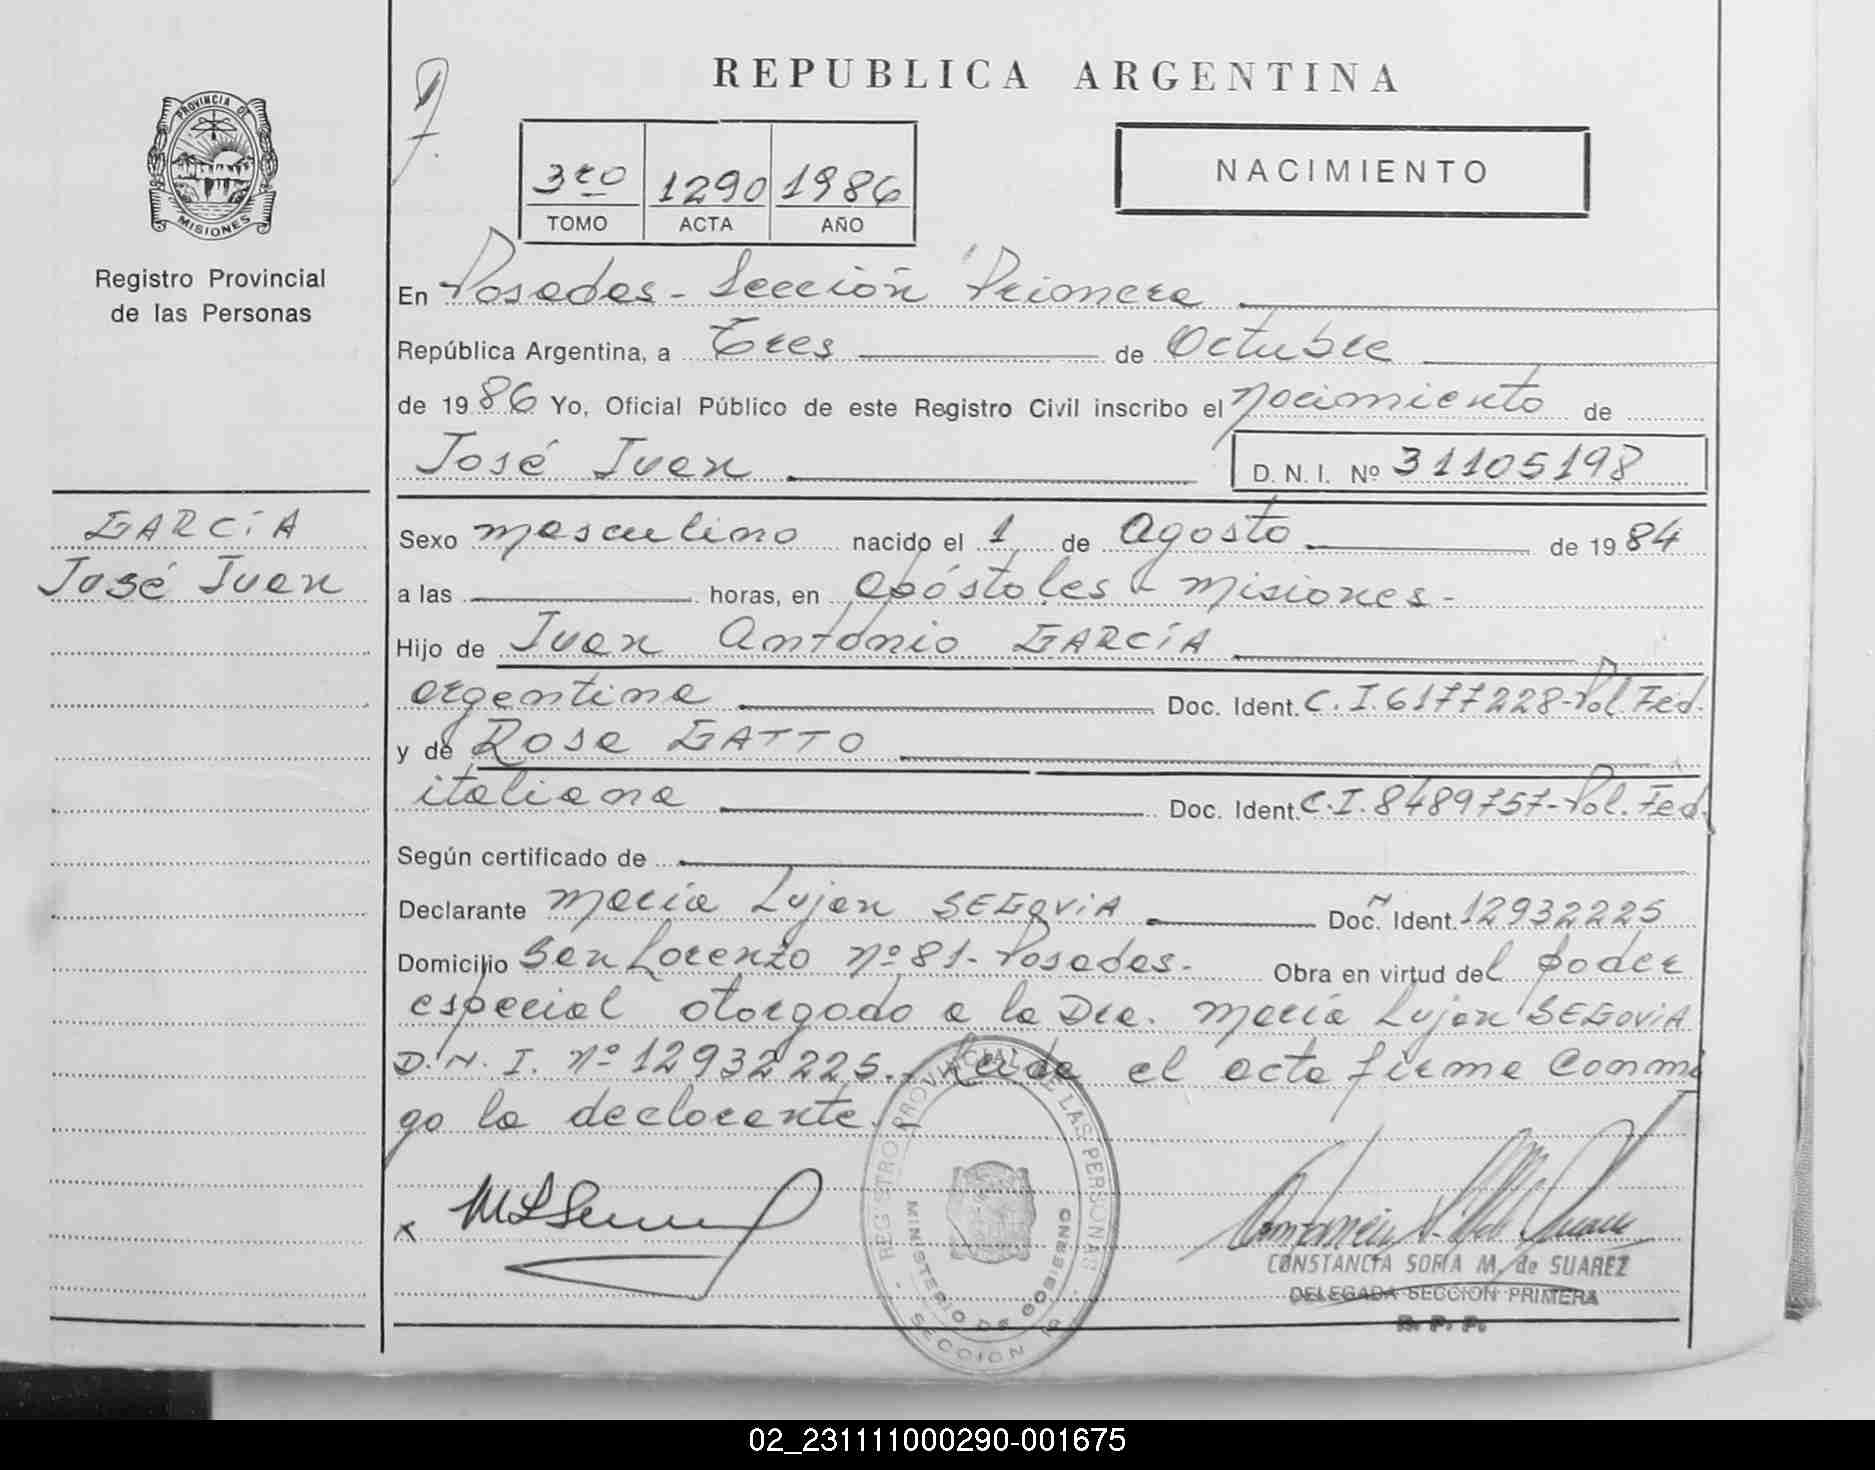 REPUBLICA ARGENTINA
PROVINCIA DE
MISIONES
Registro Provincial
de las Personas
3ro 1290 1986
TOMO ACTA AÑO
NACIMIENTO
En Posadas - Sección Primera
República Argentina, a Tres de Octubre
de 1986 Yo, Oficial Público de este Registro Civil inscribo el nacimiento de
José Juan D. N. I. Nº 31105198
GARCÍA
José Juan
Sexo masculino nacido el 1 de Agosto de 1984
a las horas, en Apóstoles - Misiones -
Hijo de Juan Antonio GARCÍA
argentina Doc. Ident. C. I. 6177228 - Pol. Fed.
y de Rosa GATTO
italiana Doc. Ident. C. I. 8489757 - Pol. Fed.
Según certificado de
Declarante María Lujan SEGOVIA Doc. Ident. 12932225
Domicilio San Lorenzo nº 81 - Posadas - Obra en virtud del poder
especial otorgado a la Dra. María Lujan SEGOVIA
D. N. I. nº 12932225. Leida el acta firma conmi
go la declarante.
REGISTRO PROVINCIAL DE LAS PERSONAS
MINISTERIO DE GOBIERNO
SECCION 1a
CONSTANCIA SOFIA M. de SUAREZ
DELEGADA SECCION PRIMERA
R. P. P.
02_231111000290-001675